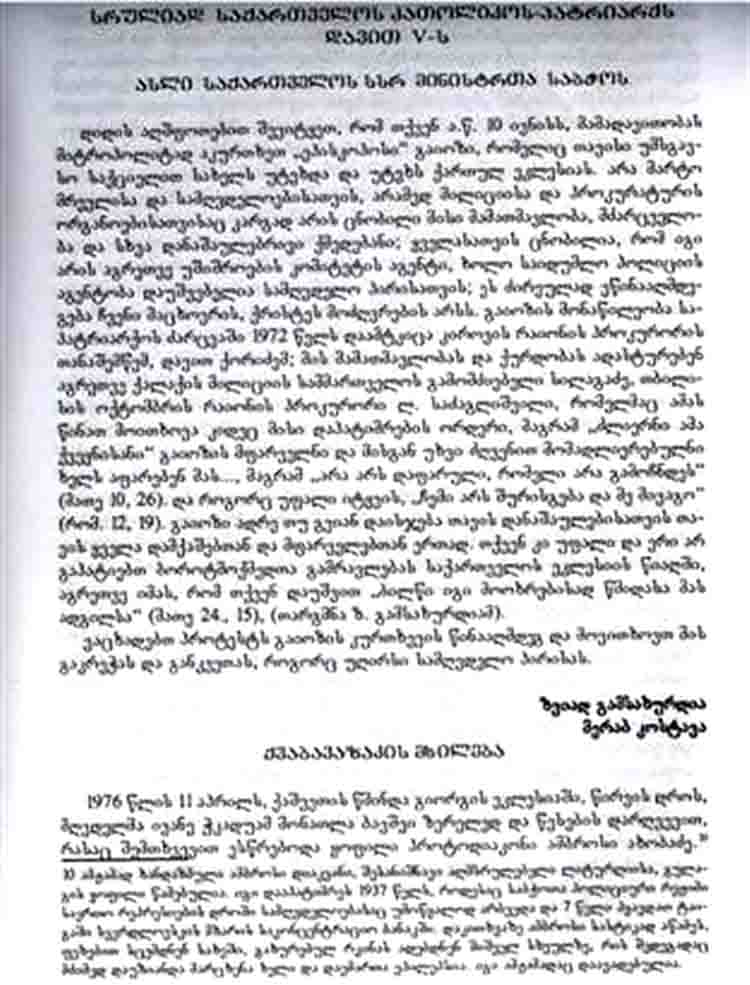 სრულიად საქართველოს კათოლიკოს-პატრიარქს
დავით V-ს
ასლი საქართველოს სსრ მინისტრთა საბჭოს
დიდის აღშფოთებით შევიტყეთ, რომ თქვენ ა.წ. 10 ივნისს, მამადავითობას
მიტროპოლიტად აკურთხეთ „ეპისკოპოსი“ გაიოზი, რომელიც თავისი უმსგავ-
სო საქციელით სახელს უტეხდა და უტეხს ქართულ ეკლესიას. არა მარტო
მრევლისა და სამღვდელოებისათვის, არამედ მილიციისა და პროკურატურის
ორგანოებისათვისაც კარგად არის ცნობილი მისი მამათმავლობა, მძარცველო-
ბა და სხვა დანაშაულებრივი ქმედებანი; ყველასათვის ცნობილია, რომ იგი
არის აგრეთვე უშიშროების კომიტეტის აგენტი, ხოლო საიდუმლო პოლიციის
აგენტობა დაუშვებელია სამღვდელო პირისათვის; ეს ძირეულად ეწინააღმდე-
გება ჩვენი მაცხოვრის, ქრისტეს მოძღვრების არსს. გაიოზის მონაწილეობა სა-
პატრიარქოს ძარცვაში 1972 წელს დაამტკიცა კიროვის რაიონის პროკურორის
თანაშემწემ, დავით ქორიძემ; მის მამათმავლობას და ქურდობას ადასტურებენ
აგრეთვე ქალაქის მილიციის სამმართველოს გამომძიებელი სილაგაძე, თბილი-
სის ოქტომბრის რაიონის პროკურორი ლ. საძაგლიშვილი, რომელმაც ამას
წინათ მოითხოვა კიდეც მისი დაპატიმრების ორდერი, მაგრამ „ძლიერნი ამა
ქვეყნისანი“ გაიოზის მფარველნი და მისგან უხვი ძღვენით მომადლიერებულნი
ხელს აფარებენ მას..., მაგრამ „არა არს დაფარული, რომელი არა გამოჩნდეს“
(მათე 10, 26). და როგორც უფალი იტყვის, „ჩემი არს შურისგება და მე მივაგო“
(რომ. 12, 19). გაიოზი ადრე თუ გვიან დაისჯება თავის დანაშაულებისათვის თა-
ვის ყველა დამქაშებთან და მფარველებთან ერთად. თქვენ კი უფალი და ერი არ
გაპატიებთ ბოროტმოქმედთა გამრავლებას საქართველოს ეკლესიის წიაღში,
აგრეთვე იმას, რომ თქვენ დაუშვით „ბილწი იგი მოოხრებისად წმიდასა მას
ადგილსა“ (მათე 24., 15), (თარგმნა ზ. გამსახურდიამ).
ვაცხადებთ პროტესტს გაიოზის კურთხევის წინააღმდეგ და მოვითხოვთ მას
გაკრეჭას და განკვეთას, როგორც უღირსი სამღვდელო პირისას.
ზვიად გამსახურდია
მერაბ კოსტავა
ქვაბავაზაკის მხილება
1976 წლის 11 აპრილს, ქაშვეთის წმინდა გიორგის ეკლესიაში, წირვის დროს,
მღვდელმა ივანე ჭკადუამ მონათლა ბავშვი ზერელედ და წესების დარღვევით,
რასაც შემთხვევით ესწრებოდა ყოფილი პროტოდიაკონი ამბროსი ახობაძე.¹⁰
10 ამჟამად ხანდაზმული ამბროსი დიაკვანი, შესანიშნავი აღმსრულებელი ლიტურღიისა, გულა-
გის ყოფილი წამებულია. იგი დააპატიმრეს 1937 წელს, როდესაც საბჭოთა პოლიციური რეჟიმი
საერთო რეპრესიების დროში სამღვდელოებასაც უმოწყალოდ არბევდა და 7 წელი ჰყავდათ ტაი-
გაში სვერდლოვსკის მხარის საკონცენტრაციო ბანაკში. დაკითხვაზე ამბროსი სასტიკად აწამეს,
ფეხებით სცემდნენ სახეში, გახურებულ რკინას ადებდნენ შიშველ სხეულზე, რის შედეგადაც
მძიმედ დაუზიანდა მარცხენა ხელი და დაემართა ეპილეფსია. იგი ამჟამადაც დაავადებულია.